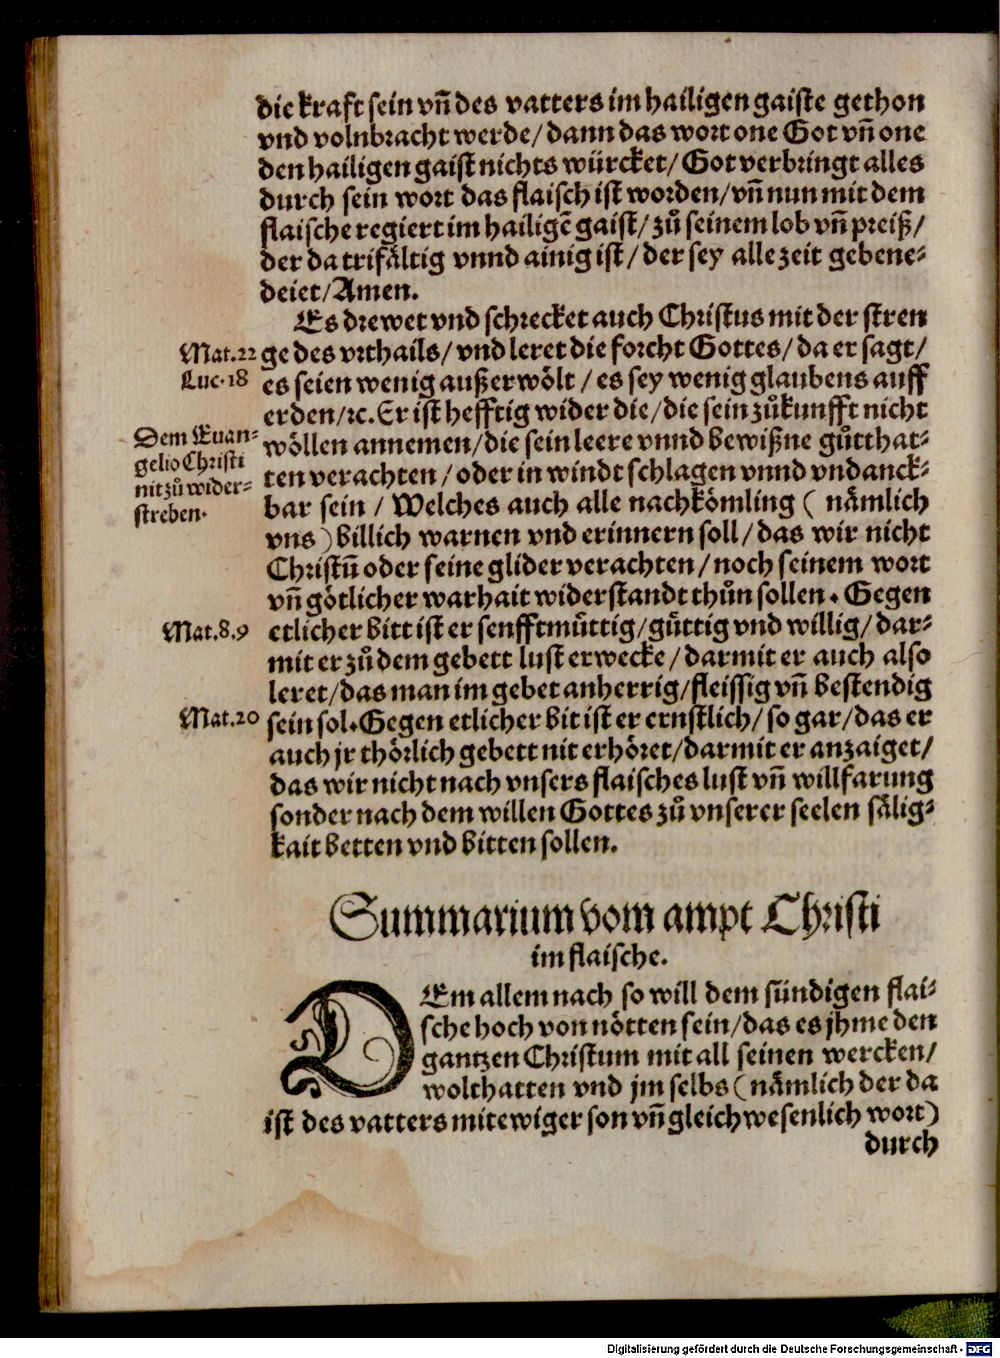 die kraft sein vñ des vatters im hailigen gaiste gethon
vnd volnbracht werde/ dann das wort one Got vñ one
den hailigen gaist nichts würcket/ Got verbringt alles
durch sein wort das flaisch ist worden/ vñ nun mit dem
flaische regiert im hailigẽ gaist/ zů seinem lob vñ preiß/
der da trifältig vnnd ainig ist/ der sey alle zeit gebene⸗
deiet/ Amen.
Es drewet vnd schrecket auch Christus mit der stren
Mat.22
ge des vrthails/ vnd leret die forcht Gottes/ da er sagt/
Luc.18
es seien wenig außerwölt/ es sey wenig glaubens auff
erden/ ꝛc. Er ist hefftig wider die/ die sein zůkunfft nicht
Dem Euan⸗
gelio Christi
nit zů wider⸗
streben.
wöllen annemen/ die sein leere vnnd bewißne gůtthat⸗
ten verachten/ oder in windt schlagen vnnd vndanck⸗
bar sein/ Welches auch alle nachkömling ( nämlich
vns ) billich warnen vnd erinnern soll/ das wir nicht
Christũ oder seine glider verachten/ noch seinem wort
vñ götlicher warhait widerstandt thůn sollen. Gegen
Mat.8.9
etlicher bitt ist er senfftmüttig/ güttig vnd willig/ dar⸗
mit er zů dem gebett lust erwecke/ darmit er auch also
leret/ das man im gebet anherrig/ fleissig vñ bestendig
Mat.20
sein sol. Gegen etlicher bit ist er ernstlich/ so gar/ das er
auch jr thörlich gebett nit erhöret/ darmit er anzaiget/
das wir nicht nach vnsers flaisches lust vñ willfarung
sonder nach dem willen Gottes zů vnserer seelen sälig⸗
kait betten vnd bitten sollen.
Summarium vom ampt Christi
im flaische.
DEm allem nach so will dem sündigen flai⸗
sche hoch von nötten sein/ das es jhme den
gantzen Christum mit all seinen wercken/
wolthatten vnd jm selbs ( nämlich der da
ist des vatters mitewiger son vñ gleichwesenlich wort)
durch
Digitalisierung gefördert durch die Deutsche Forschungsgemeinschaft - DFG